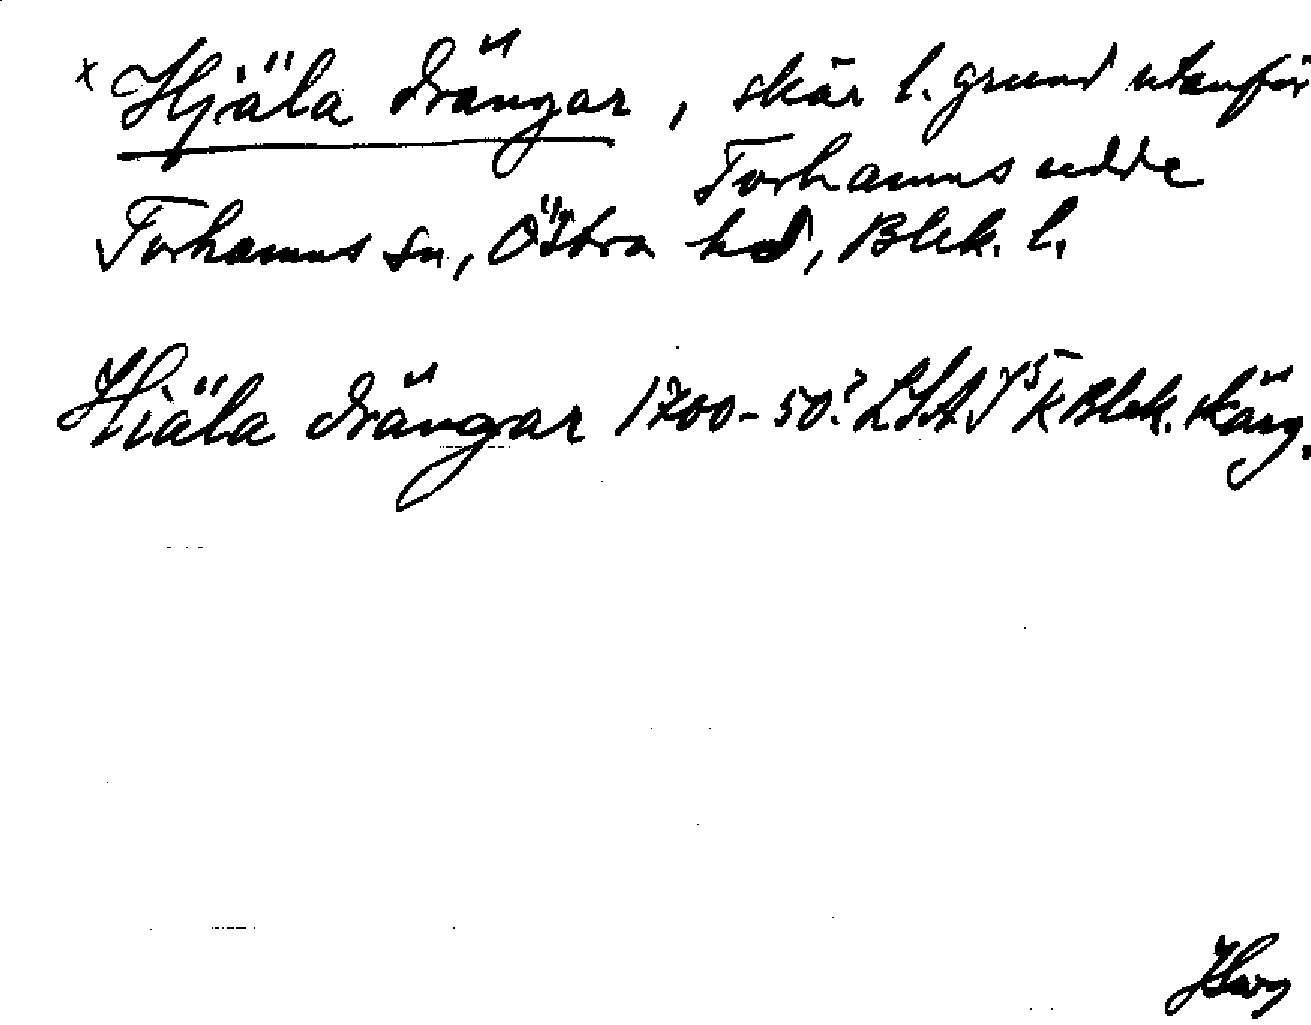 x Hjäla drängar, skär l. grund utanför
Torhamns udde
Torhamns sn, Östra hd, Blek. l.
Hiäla drängar 1700-50? LSA J 75 K Blek. skärg.